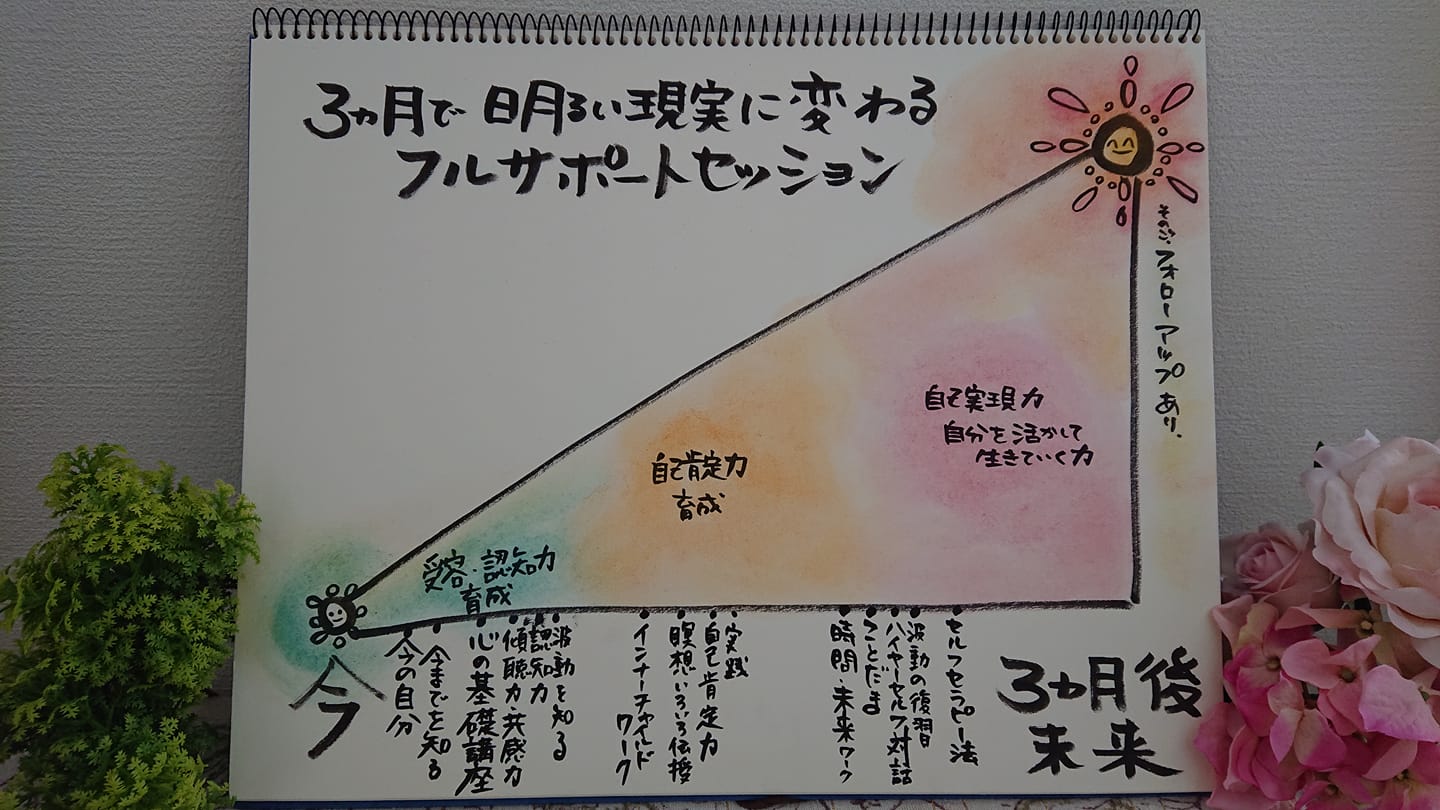 3ヵ月で明るい現実に変わる
フルサポートセッション
そのご、フォローアップあり、
自己実現力
自分を活かして
生きていく力
自己肯定力
育成
受容・認知力
育成
今
・今の自分
・今までを知る
・心の基礎講座
・傾聴力・共感力
・認知力
・波動を知る
・インナーチャイルド
ワーク
・瞑想いろいろ伝授
・自己肯定力
・実践
・時間・未来ワーク
・ことだま
・ハイヤーセルフ対話
・波動の復習
・セルフセラピー法
3ヵ月後
未来